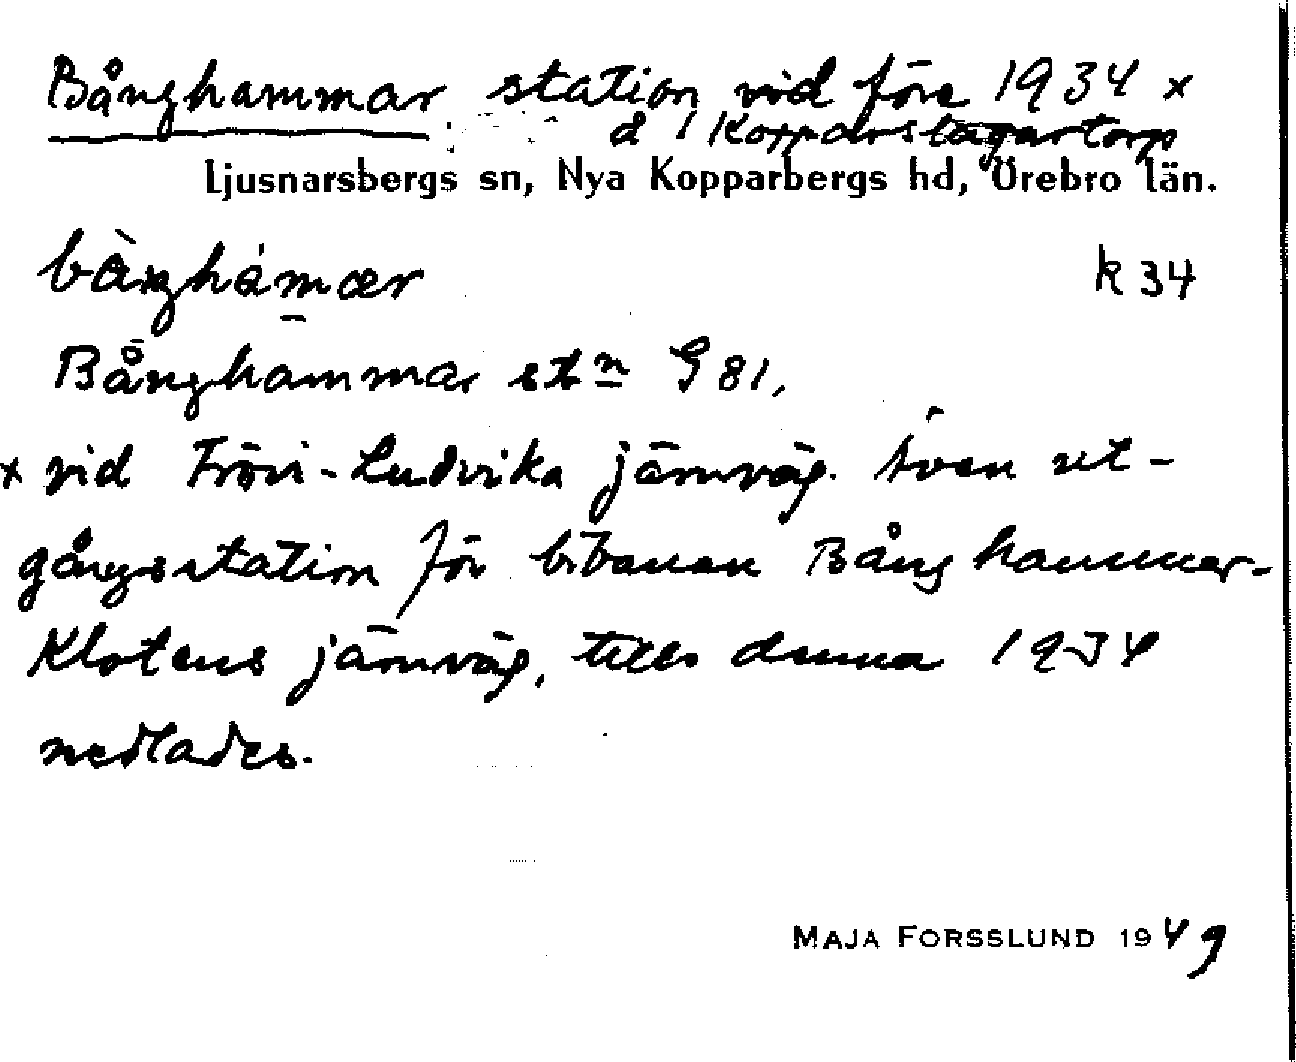 Bånghammar station vid före 1934 x
å / Kopparslagartorp
Ljusnarsbergs sn, Nya Kopparbergs hd, Örebro län.
bàŋhámær k 34
Bånghammar stn G 81,
x vid Frövi-Ludvika järnväg. Även ut-
gångsstation för bibanan Bånghammar-
Klotens järnväg, tills denna 1934
nedlades.
MAJA FORSSLUND 1949